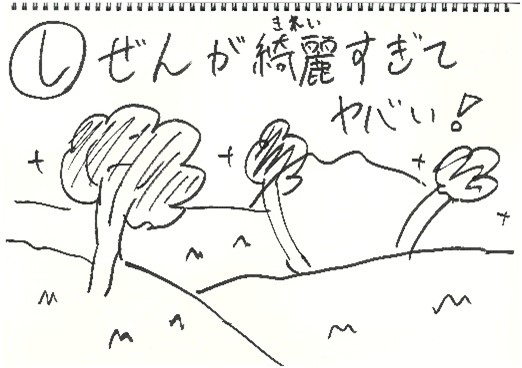 しぜんが綺麗すぎて
ヤバい!